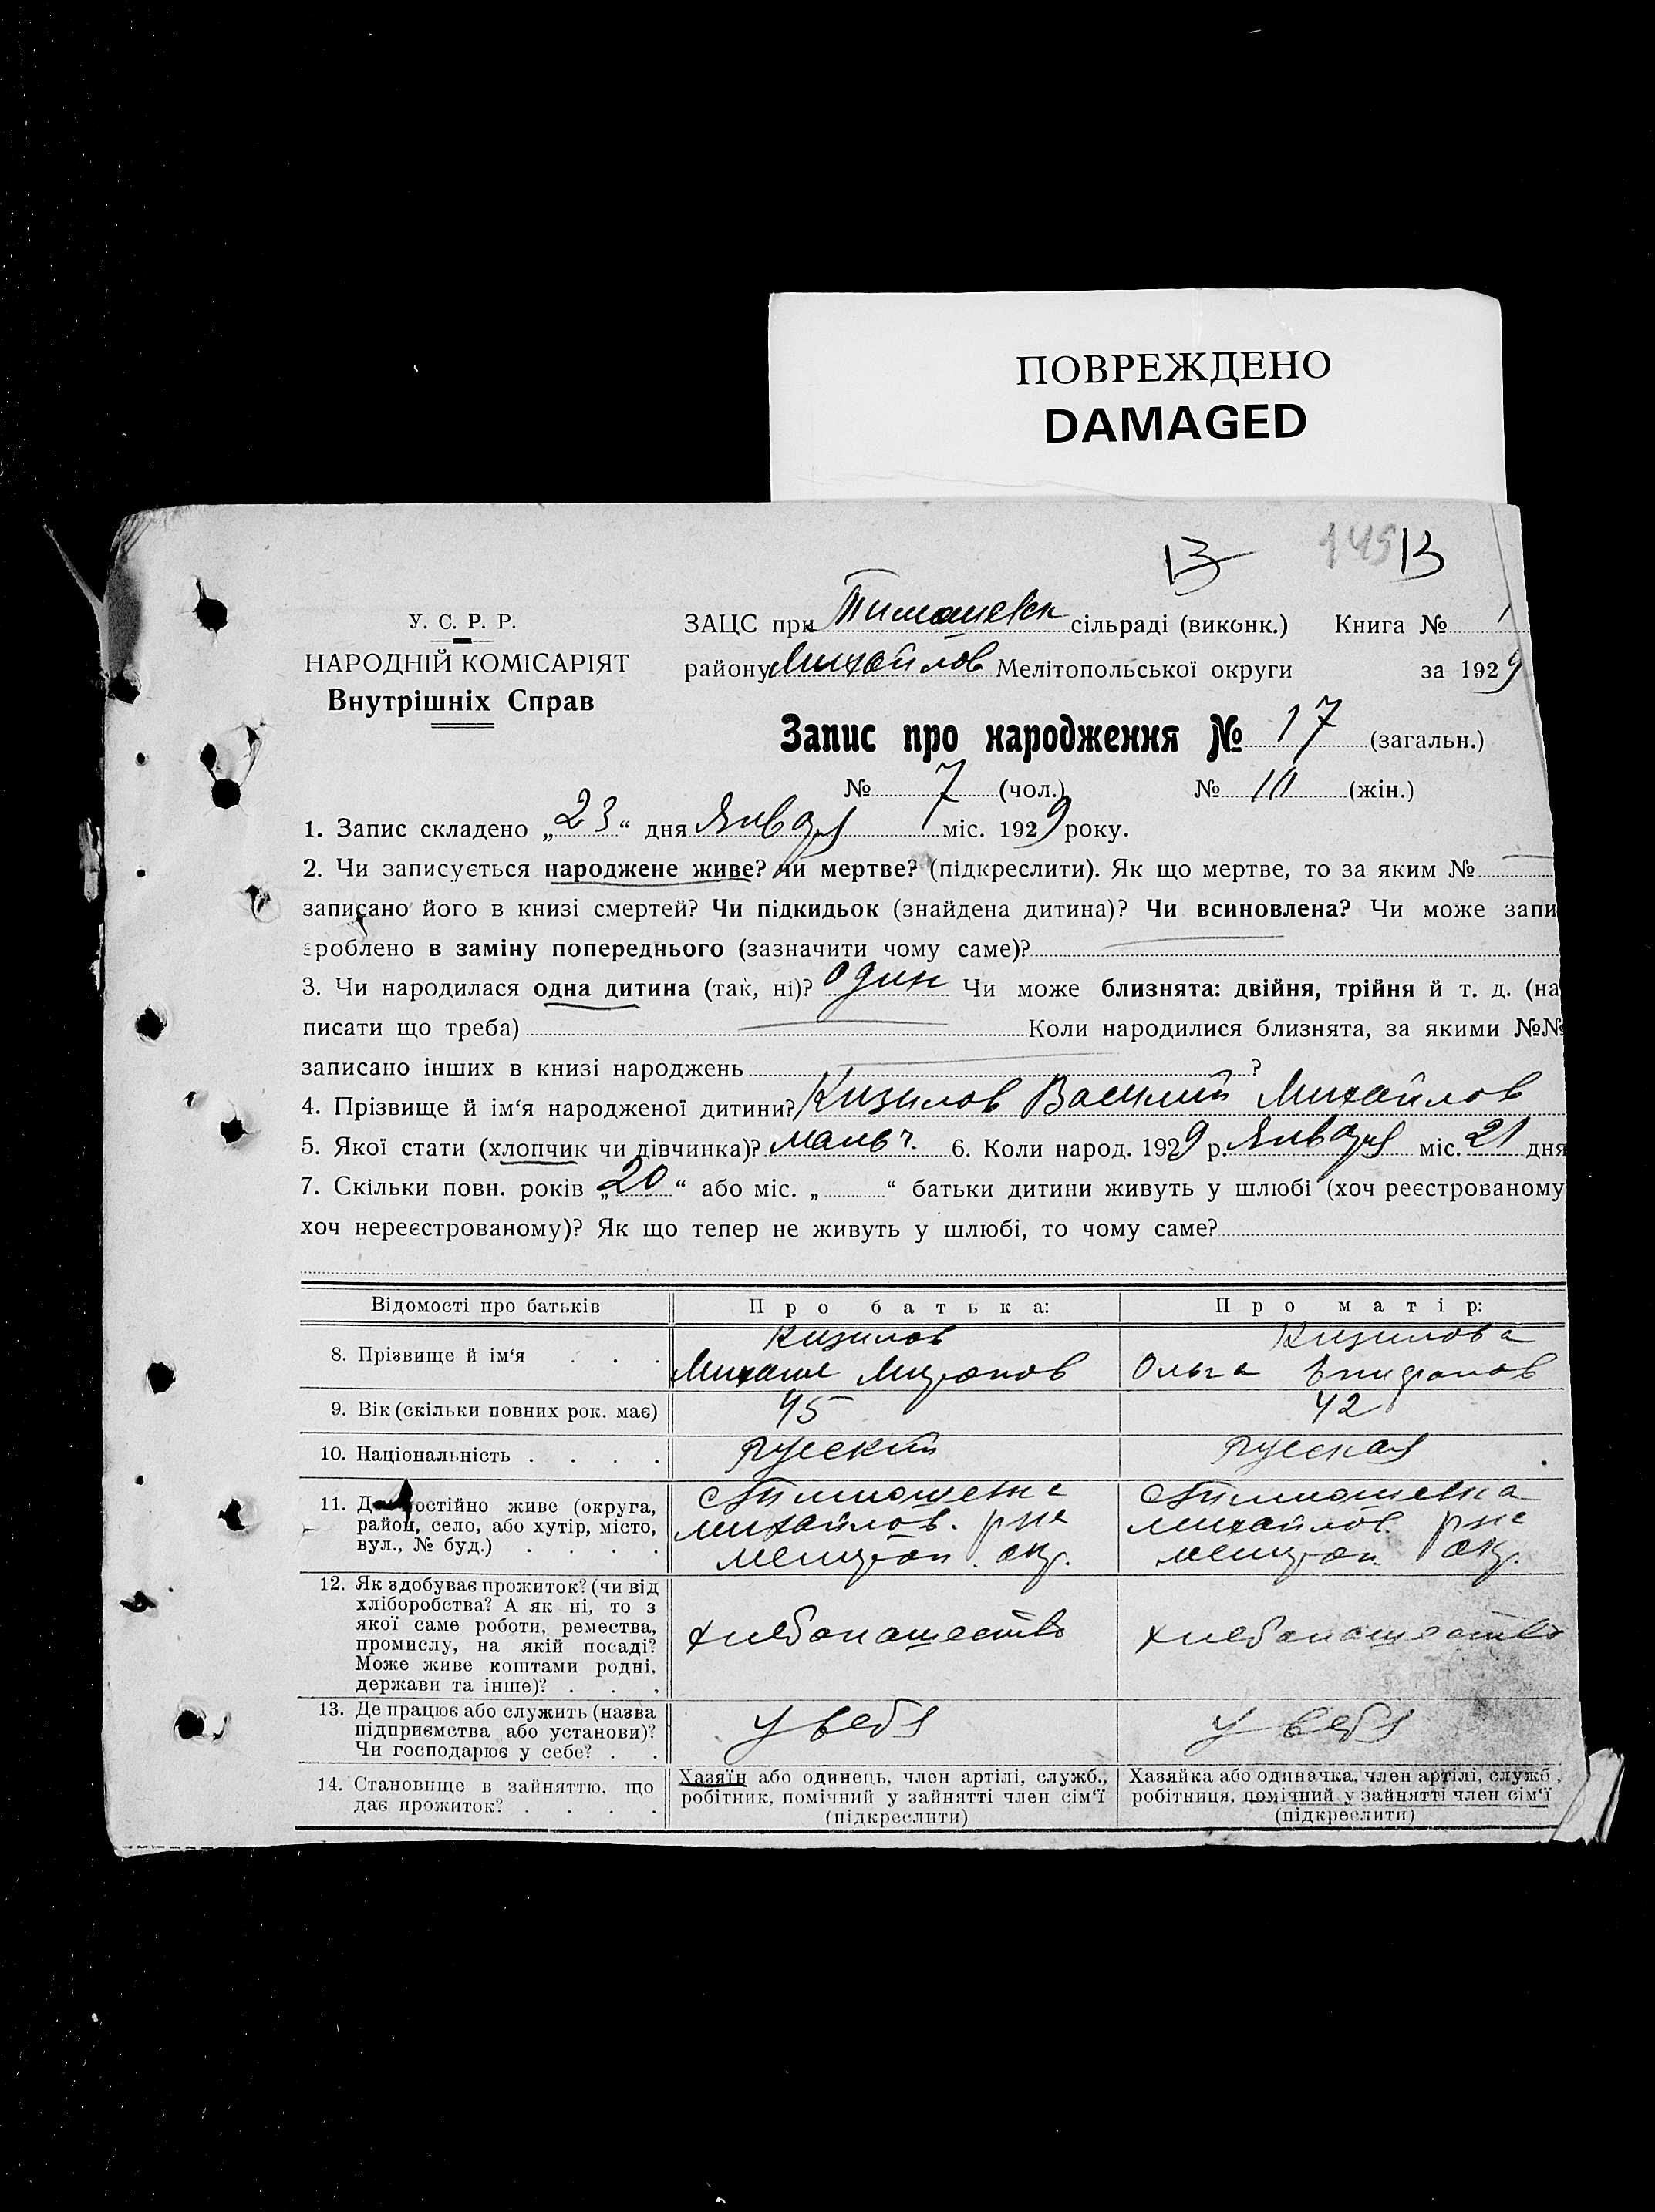 ПОВРЕЖДЕНО
DAMAGED
13 145 13
У. С. Р. Р.
НАРОДНІЙ КОМІСАРІЯТ
Внутрішніх Справ
ЗАЦС при Тимошевск сільраді (виконк.) Книга № 1
району Михайлов Мелітопольської округи за 1929
Запис про народження № 17 (загальн.)
№ 7 (чол.) № 10 (жін.)
1. Запис складено „23“ дня Января міс. 1929 року.
2. Чи записується народжене живе? чи мертве? (підкреслити). Як що мертве, то за яким №
записано його в книзі смертей? Чи підкидьок (знайдена дитина)? Чи всиновлена? Чи може запи
зроблено в заміну попереднього (зазначити чому саме)?
3. Чи народилася одна дитина (так, ні)? один Чи може близнята: двійня, трійня й т. д. (на
писати що треба) Коли народилися близнята, за якими №№
записано інших в книзі народжень ?
4. Прізвище й ім‘я народженої дитини? Кизилов Василий Михайлов
5. Якої стати (хлопчик чи дівчинка)? мальч. 6. Коли народ. 1929 р. Января міс. 21 дня
7. Скільки повн. років „20“ або міс. „ “ батьки дитини живуть у шлюбі (хоч реєстрованому
хоч нереєстрованому)? Як що тепер не живуть у шлюбі, то чому саме?
Відомості про батьків Про батька: Про матір:
8. Прізвище й ім‘я . . . Кизилов Кизилова
Михаил Митрофанов Ольга Епифанов
9. Вік (скільки повних рок. має) 45 42
10. Національність . . . . Русский Русская
11. Де постійно живе (округа, район, село, або хутір, місто, вул., № буд.) . . . .
с Тимошевка с Тимошевка
михайлов. рна михайлов. рна
мелитоп. окр. мелитоп. окр.
12. Як здобуває прожиток? (чи від
хліборобства? А як ні, то з
якої саме роботи, ремества,
промислу, на якій посаді?
Може живе коштами родні,
держави та інше)? . . .
хлебопашество хлебопашество
13. Де працює або служить (назва
підприємства або установи)?
Чи господарює у себе? . .
у себя у себя
14. Становище в зайняттю, що
дає прожиток? . . . .
Хазяїн або одинець, член артілі, служб.,
робітник, помічний у зайнятті член сім‘ї
(підкреслити)
Хазяйка або одиначка, член артілі, служб.,
робітниця, помічний у зайнятті член сім‘ї
(підкреслити)